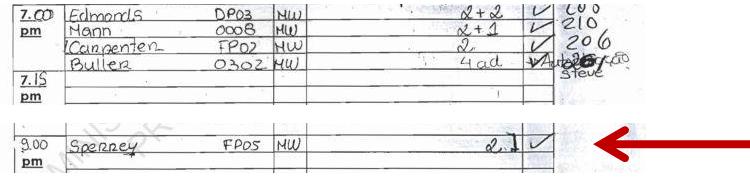 7.00 pm Edmonds DP03 MW 2+2 ✓ 200
Mann 0008 MW 2+1 ✓ 210
Carpenter FP02 MW 2. ✓ 206
Buller 0302 MW 4 ad ✓
Steve
7.15 pm
9.00 pm Sperrey FP05 MW 2.1 ✓